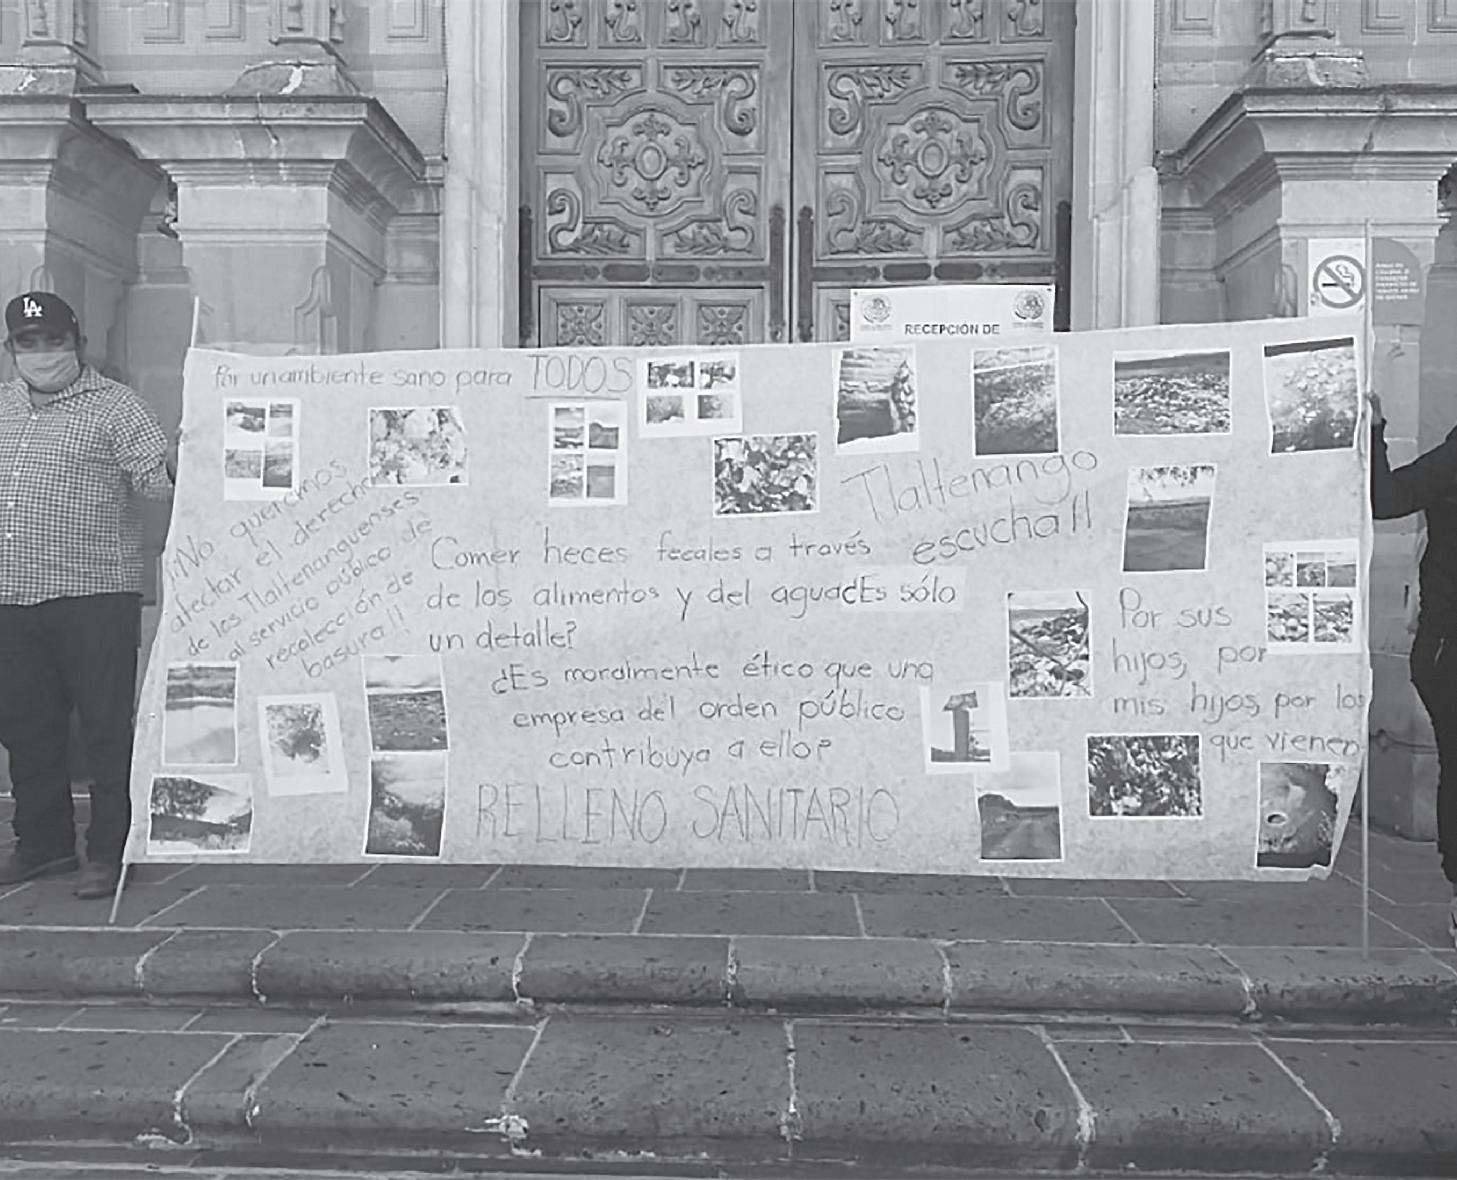 LA
RECEPCIÓN DE
Por un ambiente sano para TODOS
¡¡No queremos
afectar el derecho
de los Tlaltenanguenses
al servicio público de
recolección de
basura!!
Tlaltenango
escucha!!
Comer heces fecales a través
de los alimentos y del agua ¿Es sólo
un detalle?
¿Es moralmente ético que una
empresa del orden público
contribuya a ello?
RELLENO SANITARIO
Por sus
hijos, por
mis hijos, por los
que vienen